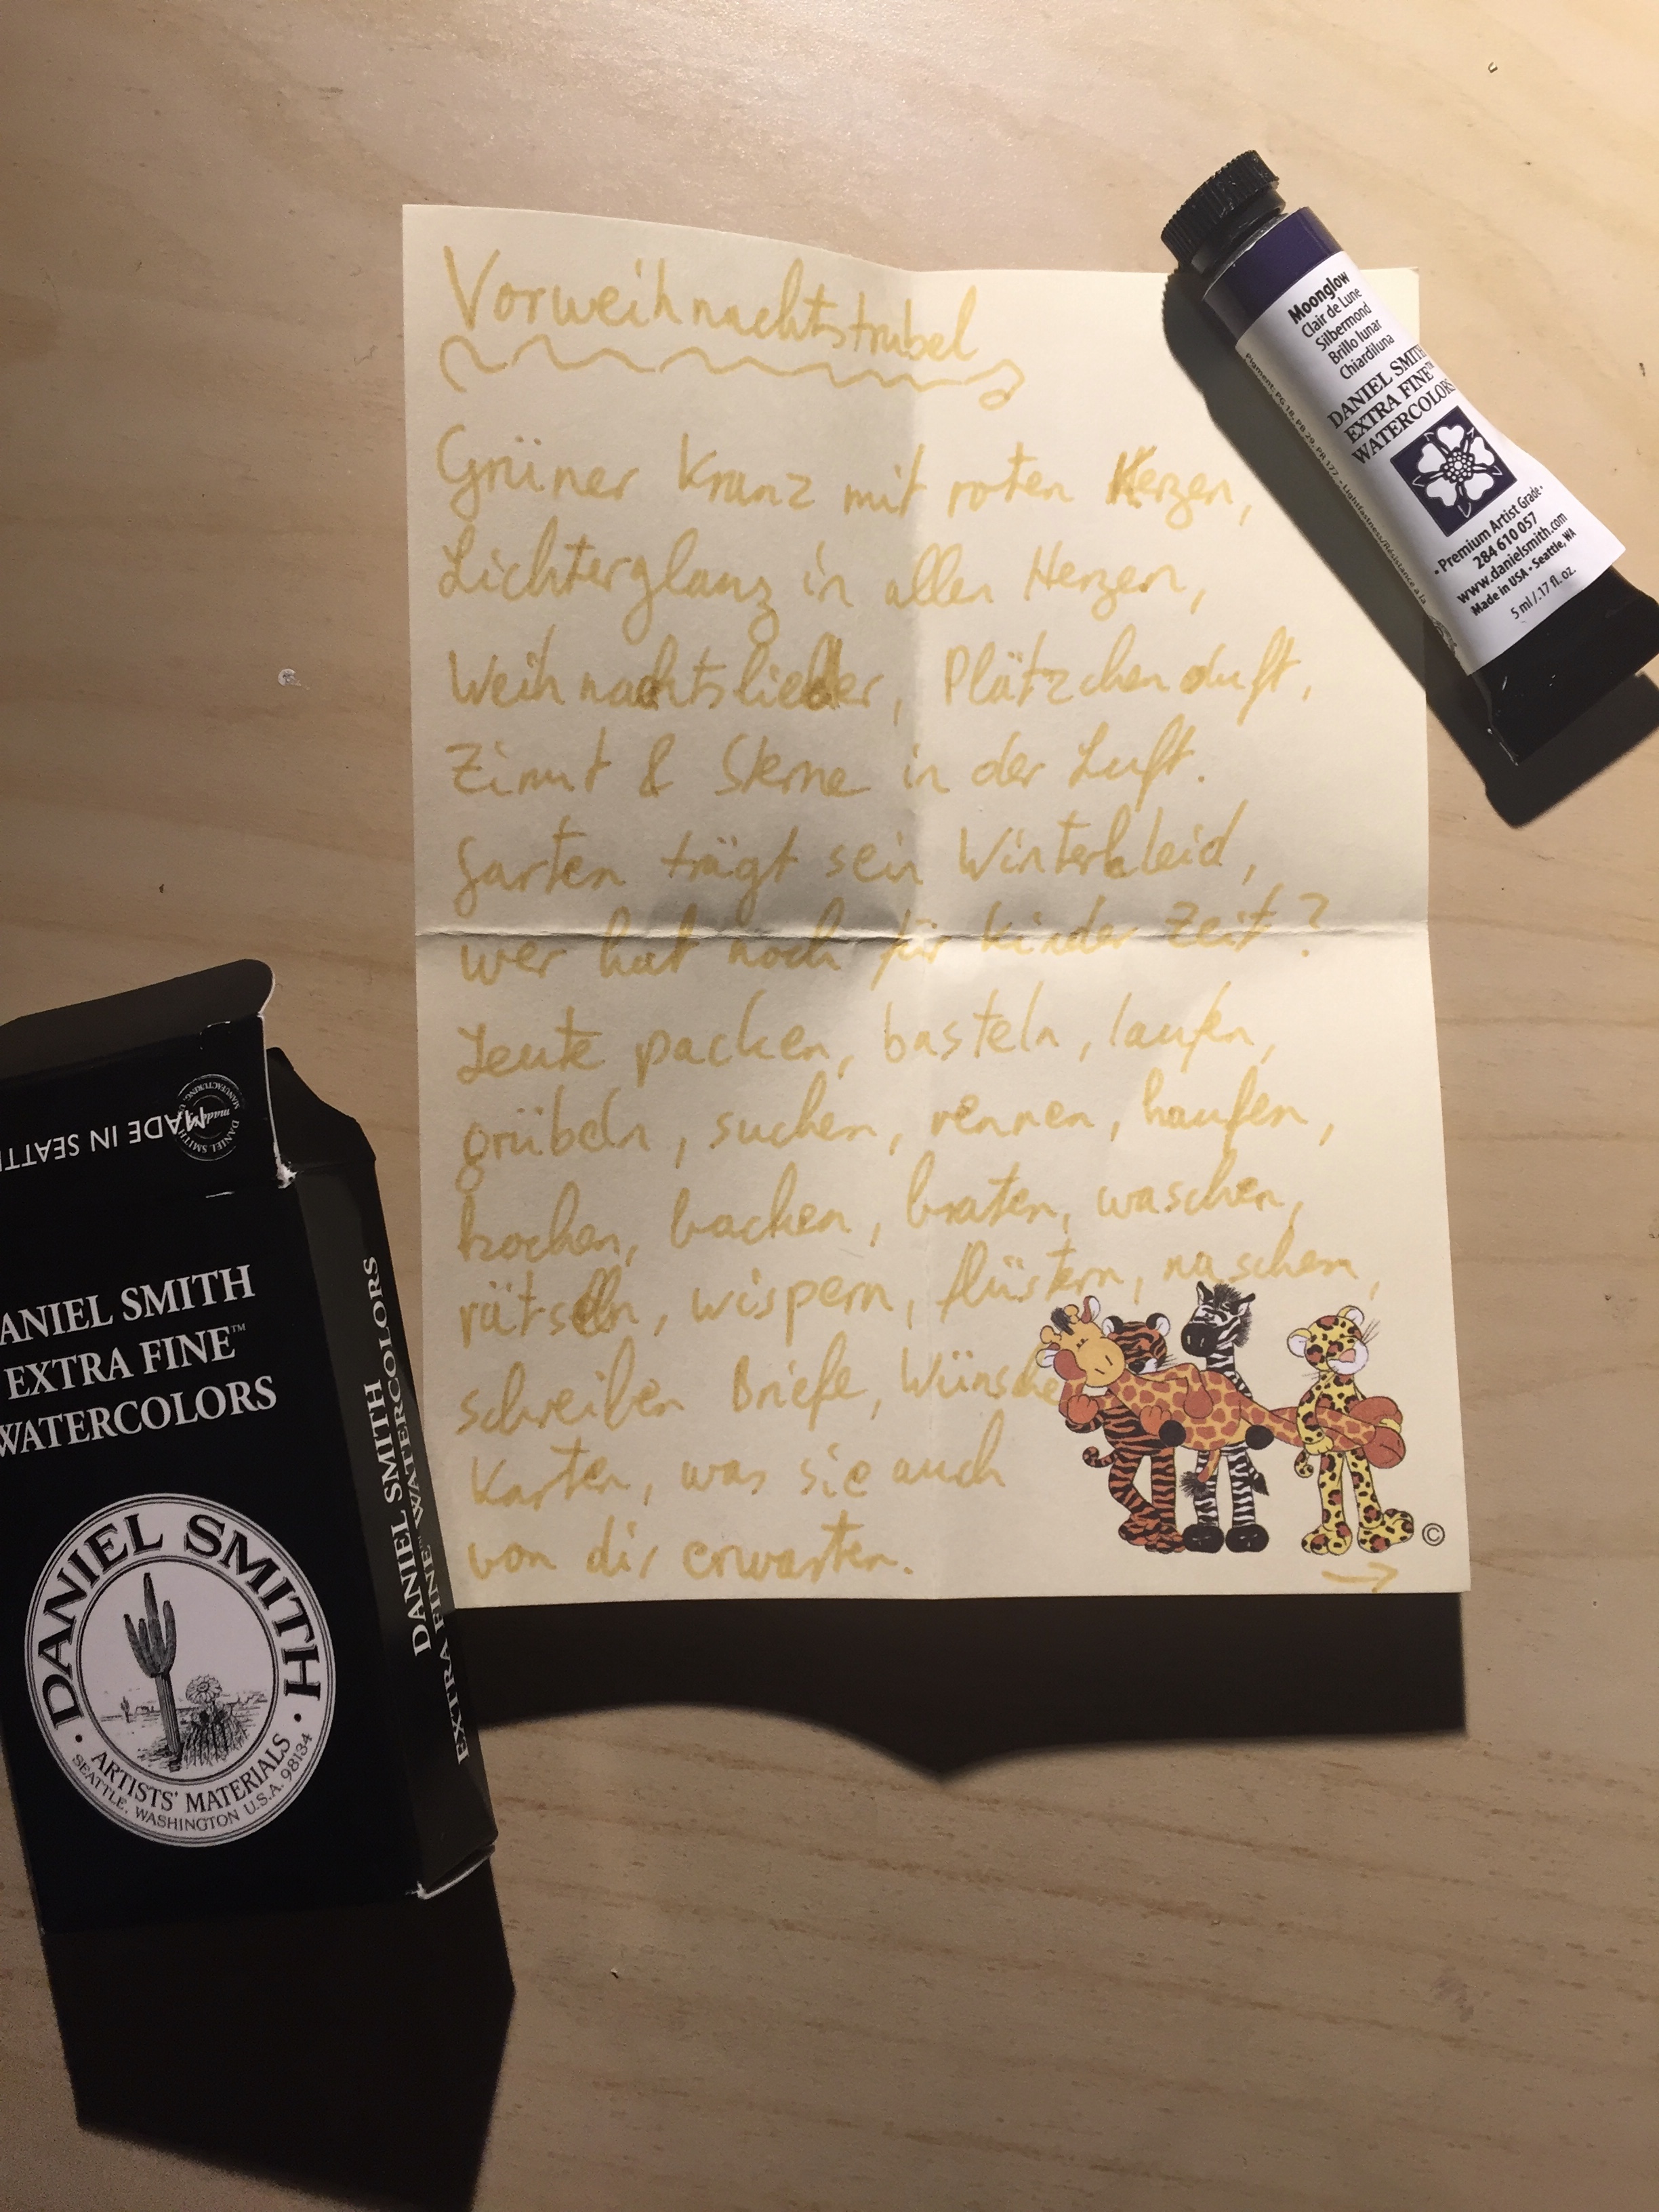 Vorweihnachtstrubel
Grüner Kranz mit roten Kerzen,
Lichterglanz in allen Herzen,
Weihnachtslieder, Plätzchenduft,
Zimt & Sterne in der Luft.
Garten trägt sein Winterkleid,
wer hat noch für Kinder Zeit?
Leute packen, basteln, laufen,
grübeln, suchen, rennen, kaufen,
kochen, backen, braten, waschen,
rätseln, wispern, flüstern, naschen,
schreiben Briefe, Wünsche
Karten, was sie auch
von dir erwarten.
→
©
Moonglow
Clair de Lune
Silbermond
Brillo lunar
Chiardiluna
DANIEL SMITH
EXTRA FINE™
WATERCOLORS
• Premium Artist Grade •
284 610 057
www.danielsmith.com
Made in USA • Seattle, WA
5 ml / .17 fl. oz.
Pigment: PG 18, PB 29, PR 177 - Lightfastness/Résistance à la
MADE IN SEATTL
DANIEL SMITH
MANUFACTURING
made
ANIEL SMITH
EXTRA FINE™
WATERCOLORS
DANIEL SMITH
ARTISTS' MATERIALS
SEATTLE, WASHINGTON U.S.A. 98134
DANIEL SMITH
WATERCOLORS
DANIEL SMITH
EXTRA FINE™ WATERCOLORS